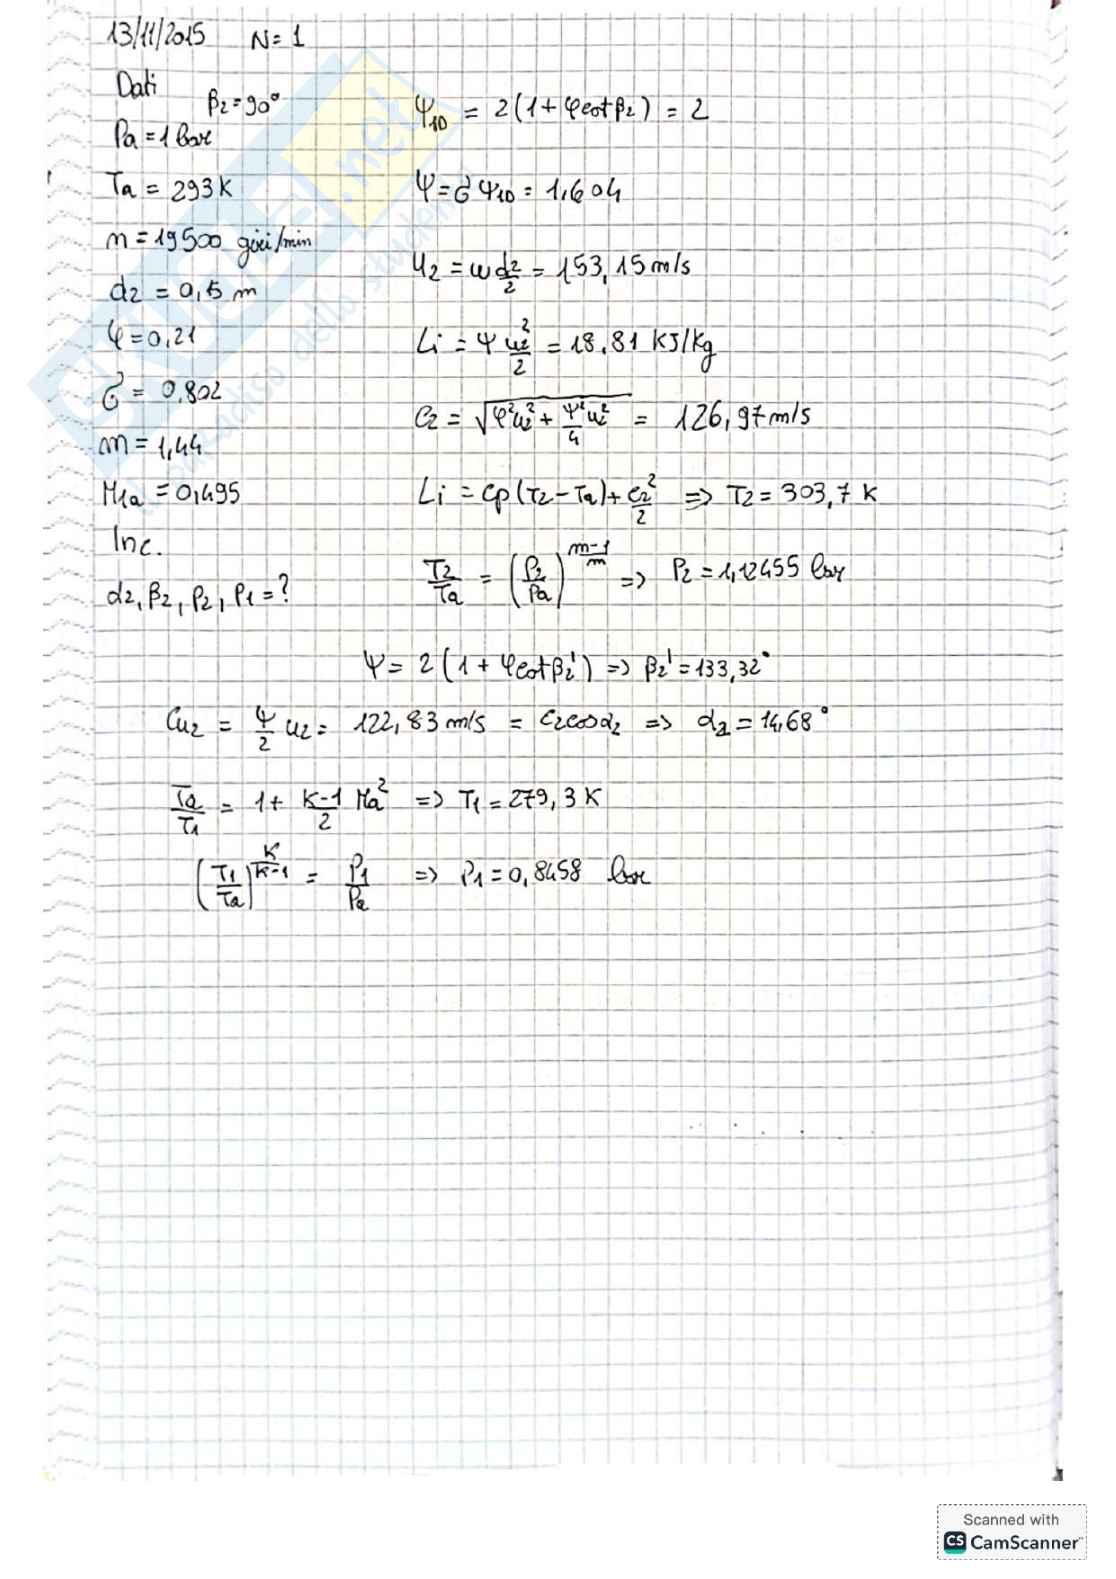 13/11/2015 N=1
Dati
β2=90°
Pa = 1 bar
Ta = 293 K
n = 19500 giri/min
d2 = 0,15 m
φ = 0,21
σ = 0,802
m = 1,44
M1a = 0,495
Inc.
α2, β2, P2, P1 = ?
Ψ1D = 2(1+φcotβ2) = 2
Ψ = σ Ψ1D = 1,604
u2 = ω d2/2 = 153,15 m/s
Li = Ψ u2²/2 = 18,81 KJ/Kg
C2 = √(φ²u2² + Ψ²/4 u2²) = 126,97 m/s
Li = cp(T2-Ta) + c2²/2 => T2 = 303,7 K
T2/Ta = (P2/Pa)^((m-1)/m) => P2 = 1,12455 bar
Ψ = 2(1 + φcotβ2') => β2' = 133,32°
Cu2 = Ψ/2 u2 = 122,83 m/s = c2cosα2 => α2 = 14,68°
Ta/T1 = 1 + (K-1)/2 Ma² => T1 = 279,3 K
(T1/Ta)^(K/(K-1)) = P1/Pa => P1 = 0,8458 bar
Scanned with
CS CamScanner